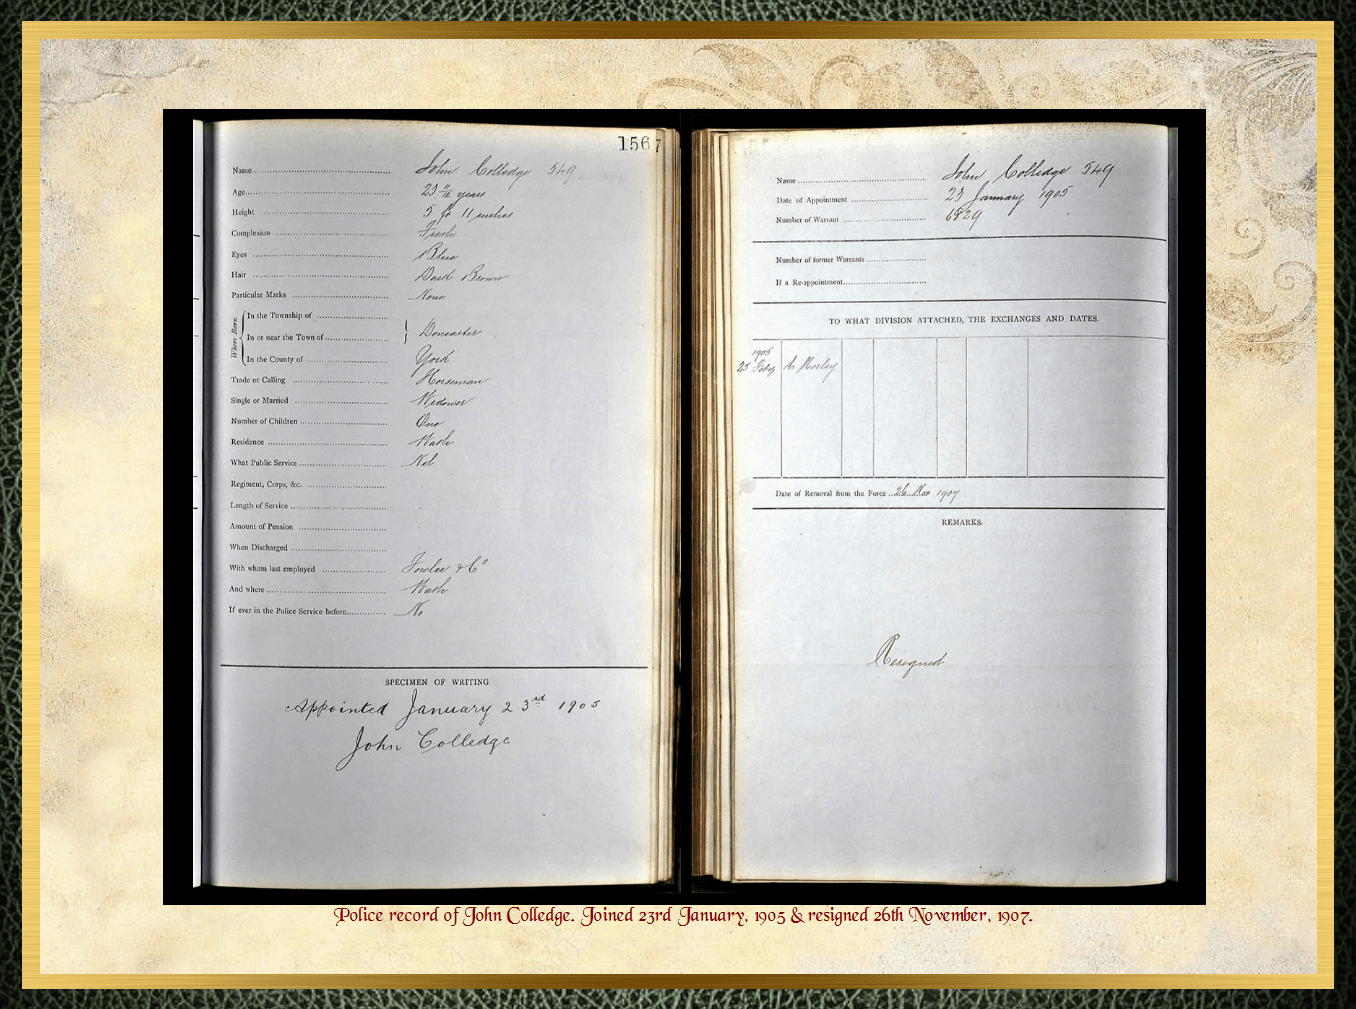 1567
Name John Colledge 549
Age 23 11/12 years
Height 5 ft 11 inches
Complexion Fresh
Eyes Blue
Hair Dark Brown
Particular Marks None
Where Born.
In the Township of
In or near the Town of Doncaster
In the County of York
Trade or Calling Horseman
Single or Married Widower
Number of Children One
Residence Wath
What Public Service Nil
Regiment, Corps, &c.
Length of Service
Amount of Pension
When Discharged
With whom last employed Fowler & Co
And where Wath
If ever in the Police Service before No
SPECIMEN OF WRITING.
Appointed January 23rd 1905
John Colledge
Name John Colledge 549
Date of Appointment 23 January 1905
Number of Warrant 6829
Number of former Warrants
If a Re-appointment
TO WHAT DIVISION ATTACHED, THE EXCHANGES AND DATES.
1905
25 Feby A Morley
Date of Removal from the Force 26 Nov 1907
REMARKS.
Resigned
Police record of John Colledge. Joined 23rd January, 1905 & resigned 26th November, 1907.